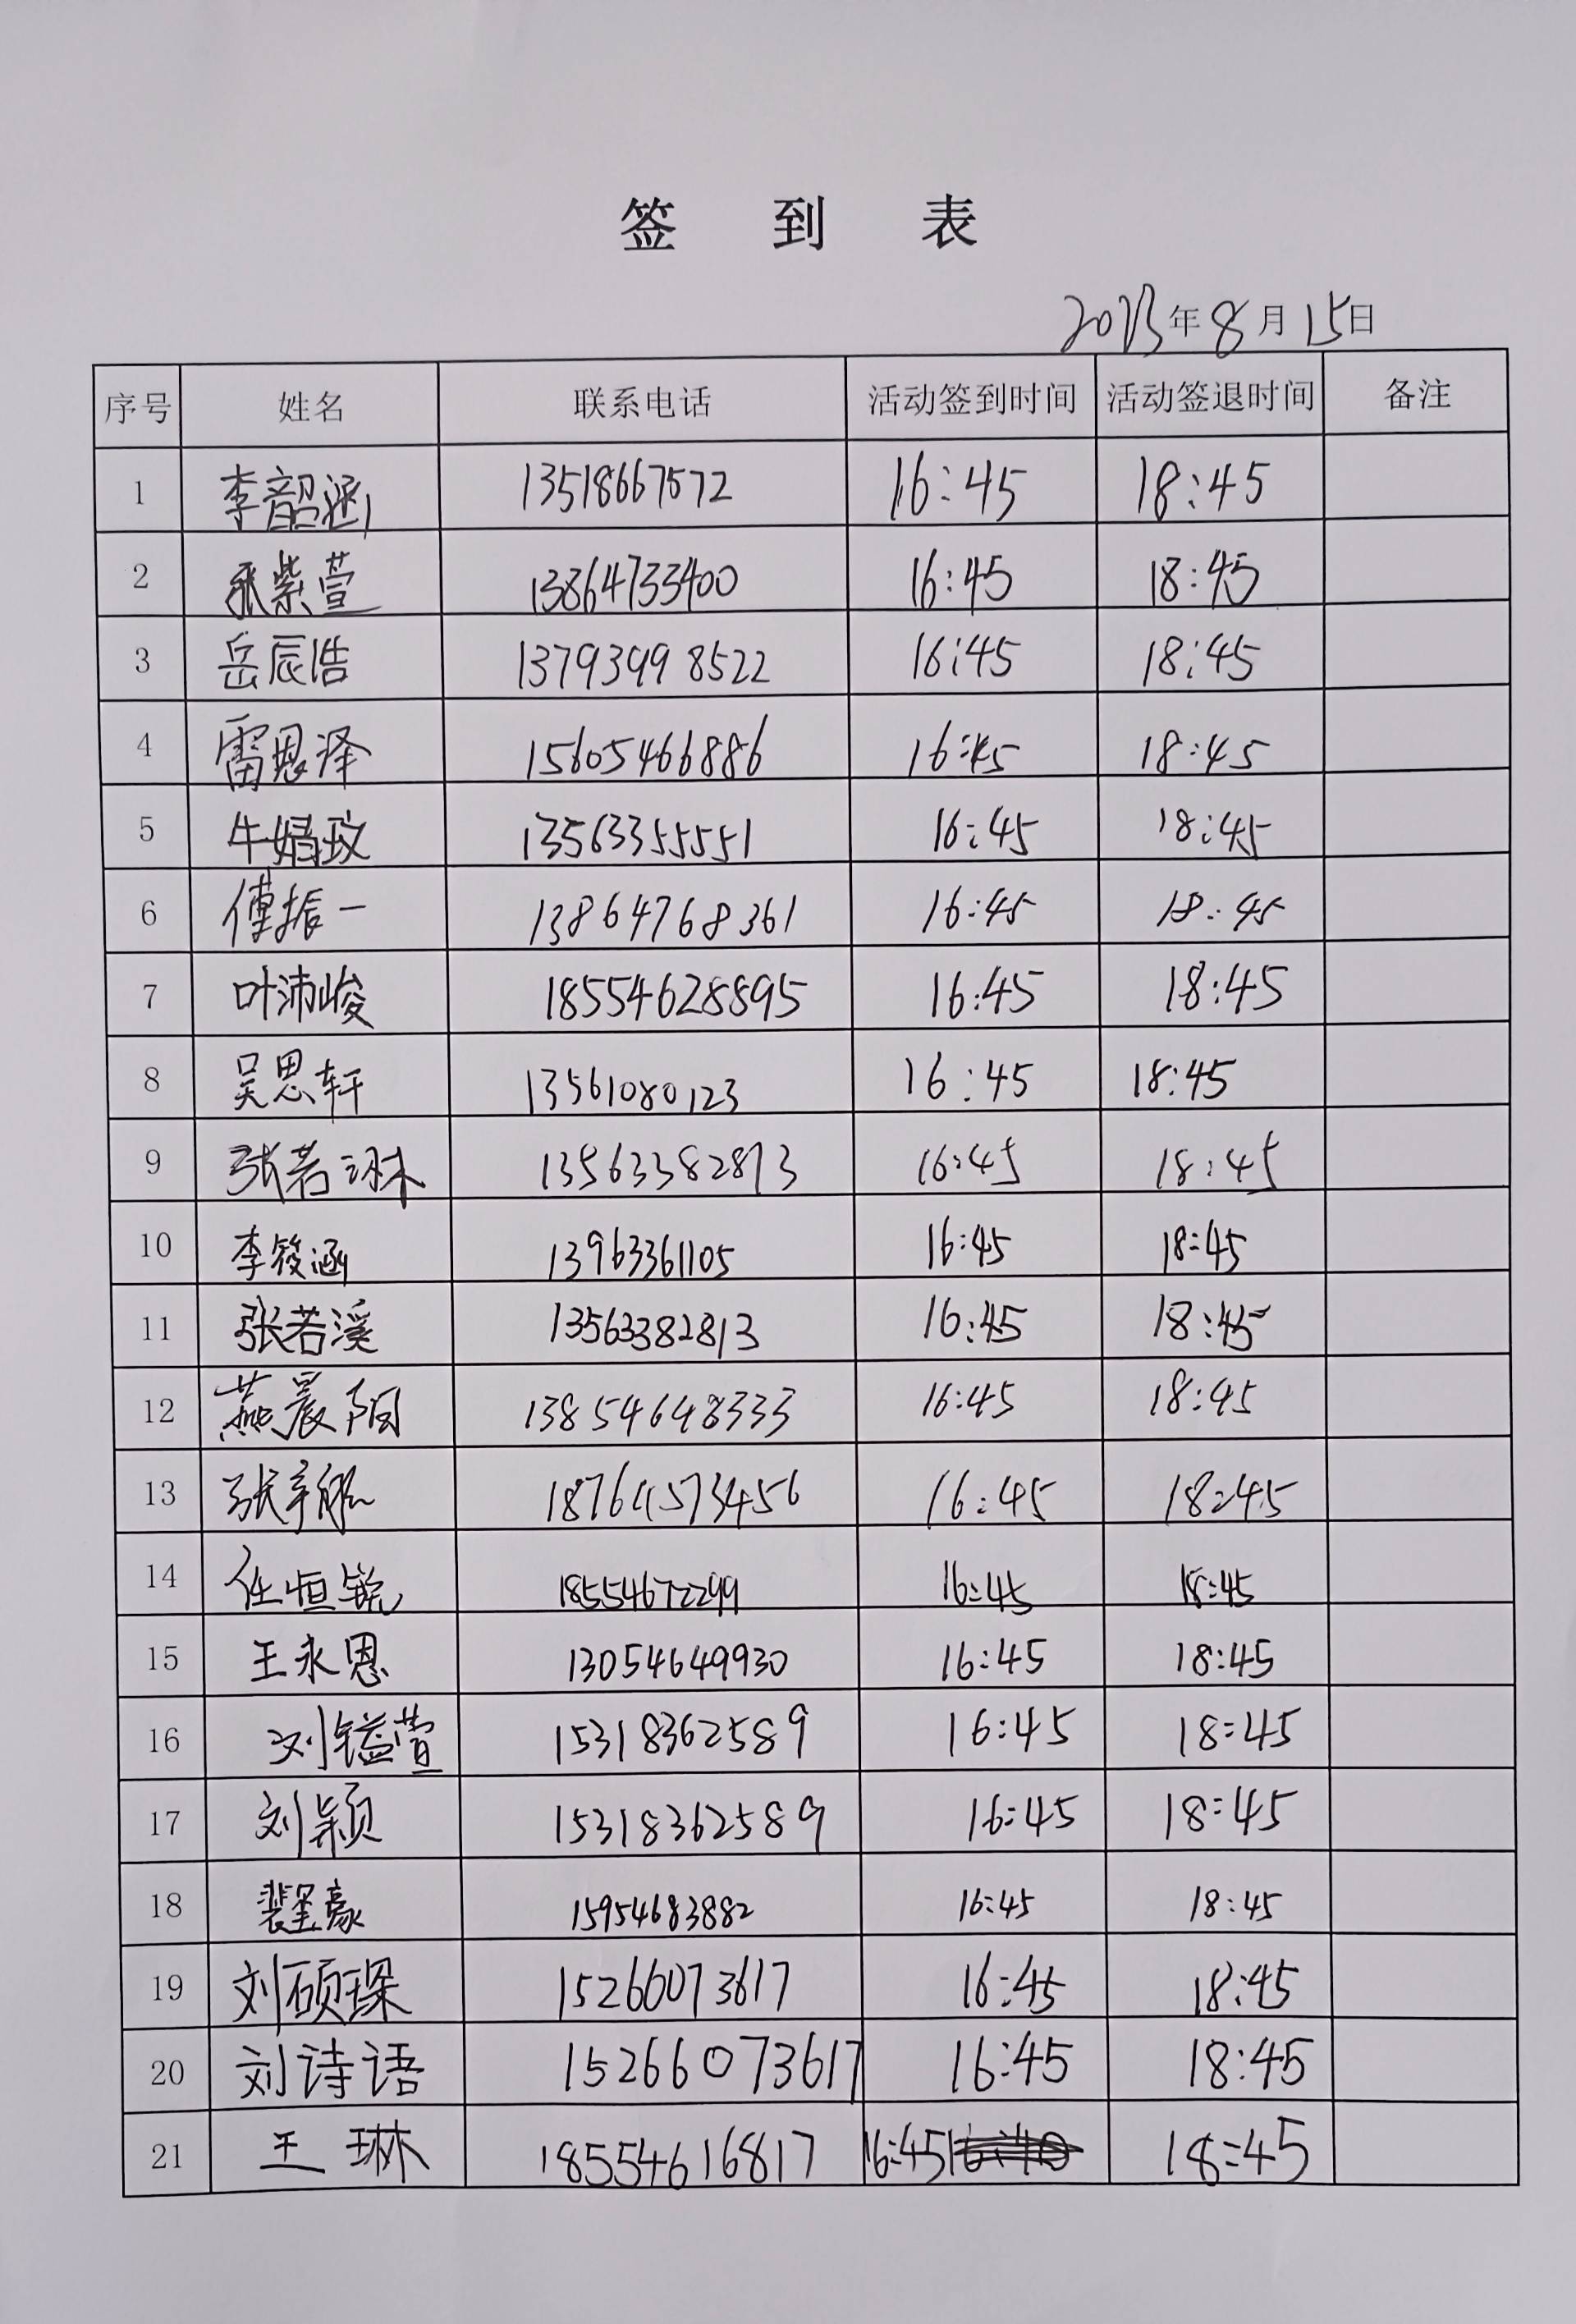 签 到 表
2023年8月15日
序号 姓名 联系电话 活动签到时间 活动签退时间 备注
1 李韶涵 13518667572 16:45 18:45
2 张紫萱 13864733400 16:45 18:45
3 岳辰浩 13793998522 16:45 18:45
4 雷恩泽 15605466886 16:45 18:45
5 牛娟玟 13563355551 16:45 18:45
6 傅振一 13864768361 16:45 18:45
7 叶沛峻 18554628895 16:45 18:45
8 吴思轩 13561080123 16:45 18:45
9 张若琳 13563382813 16:45 18:45
10 李筱涵 13963361105 16:45 18:45
11 张若溪 13563382813 16:45 18:45
12 燕晨阳 13854648333 16:45 18:45
13 18764573456 16:45 18:45
14 任恒锐 18554672299 16:45 18:45
15 王永恩 13054649930 16:45 18:45
16 刘镒萱 15318362589 16:45 18:45
17 刘颖 15318362589 16:45 18:45
18 裴圣豪 15954683882 16:45 18:45
19 刘硕琛 15266073617 16:45 18:45
20 刘诗语 15266073617 16:45 18:45
21 王琳 18554616817 16:45 18:45